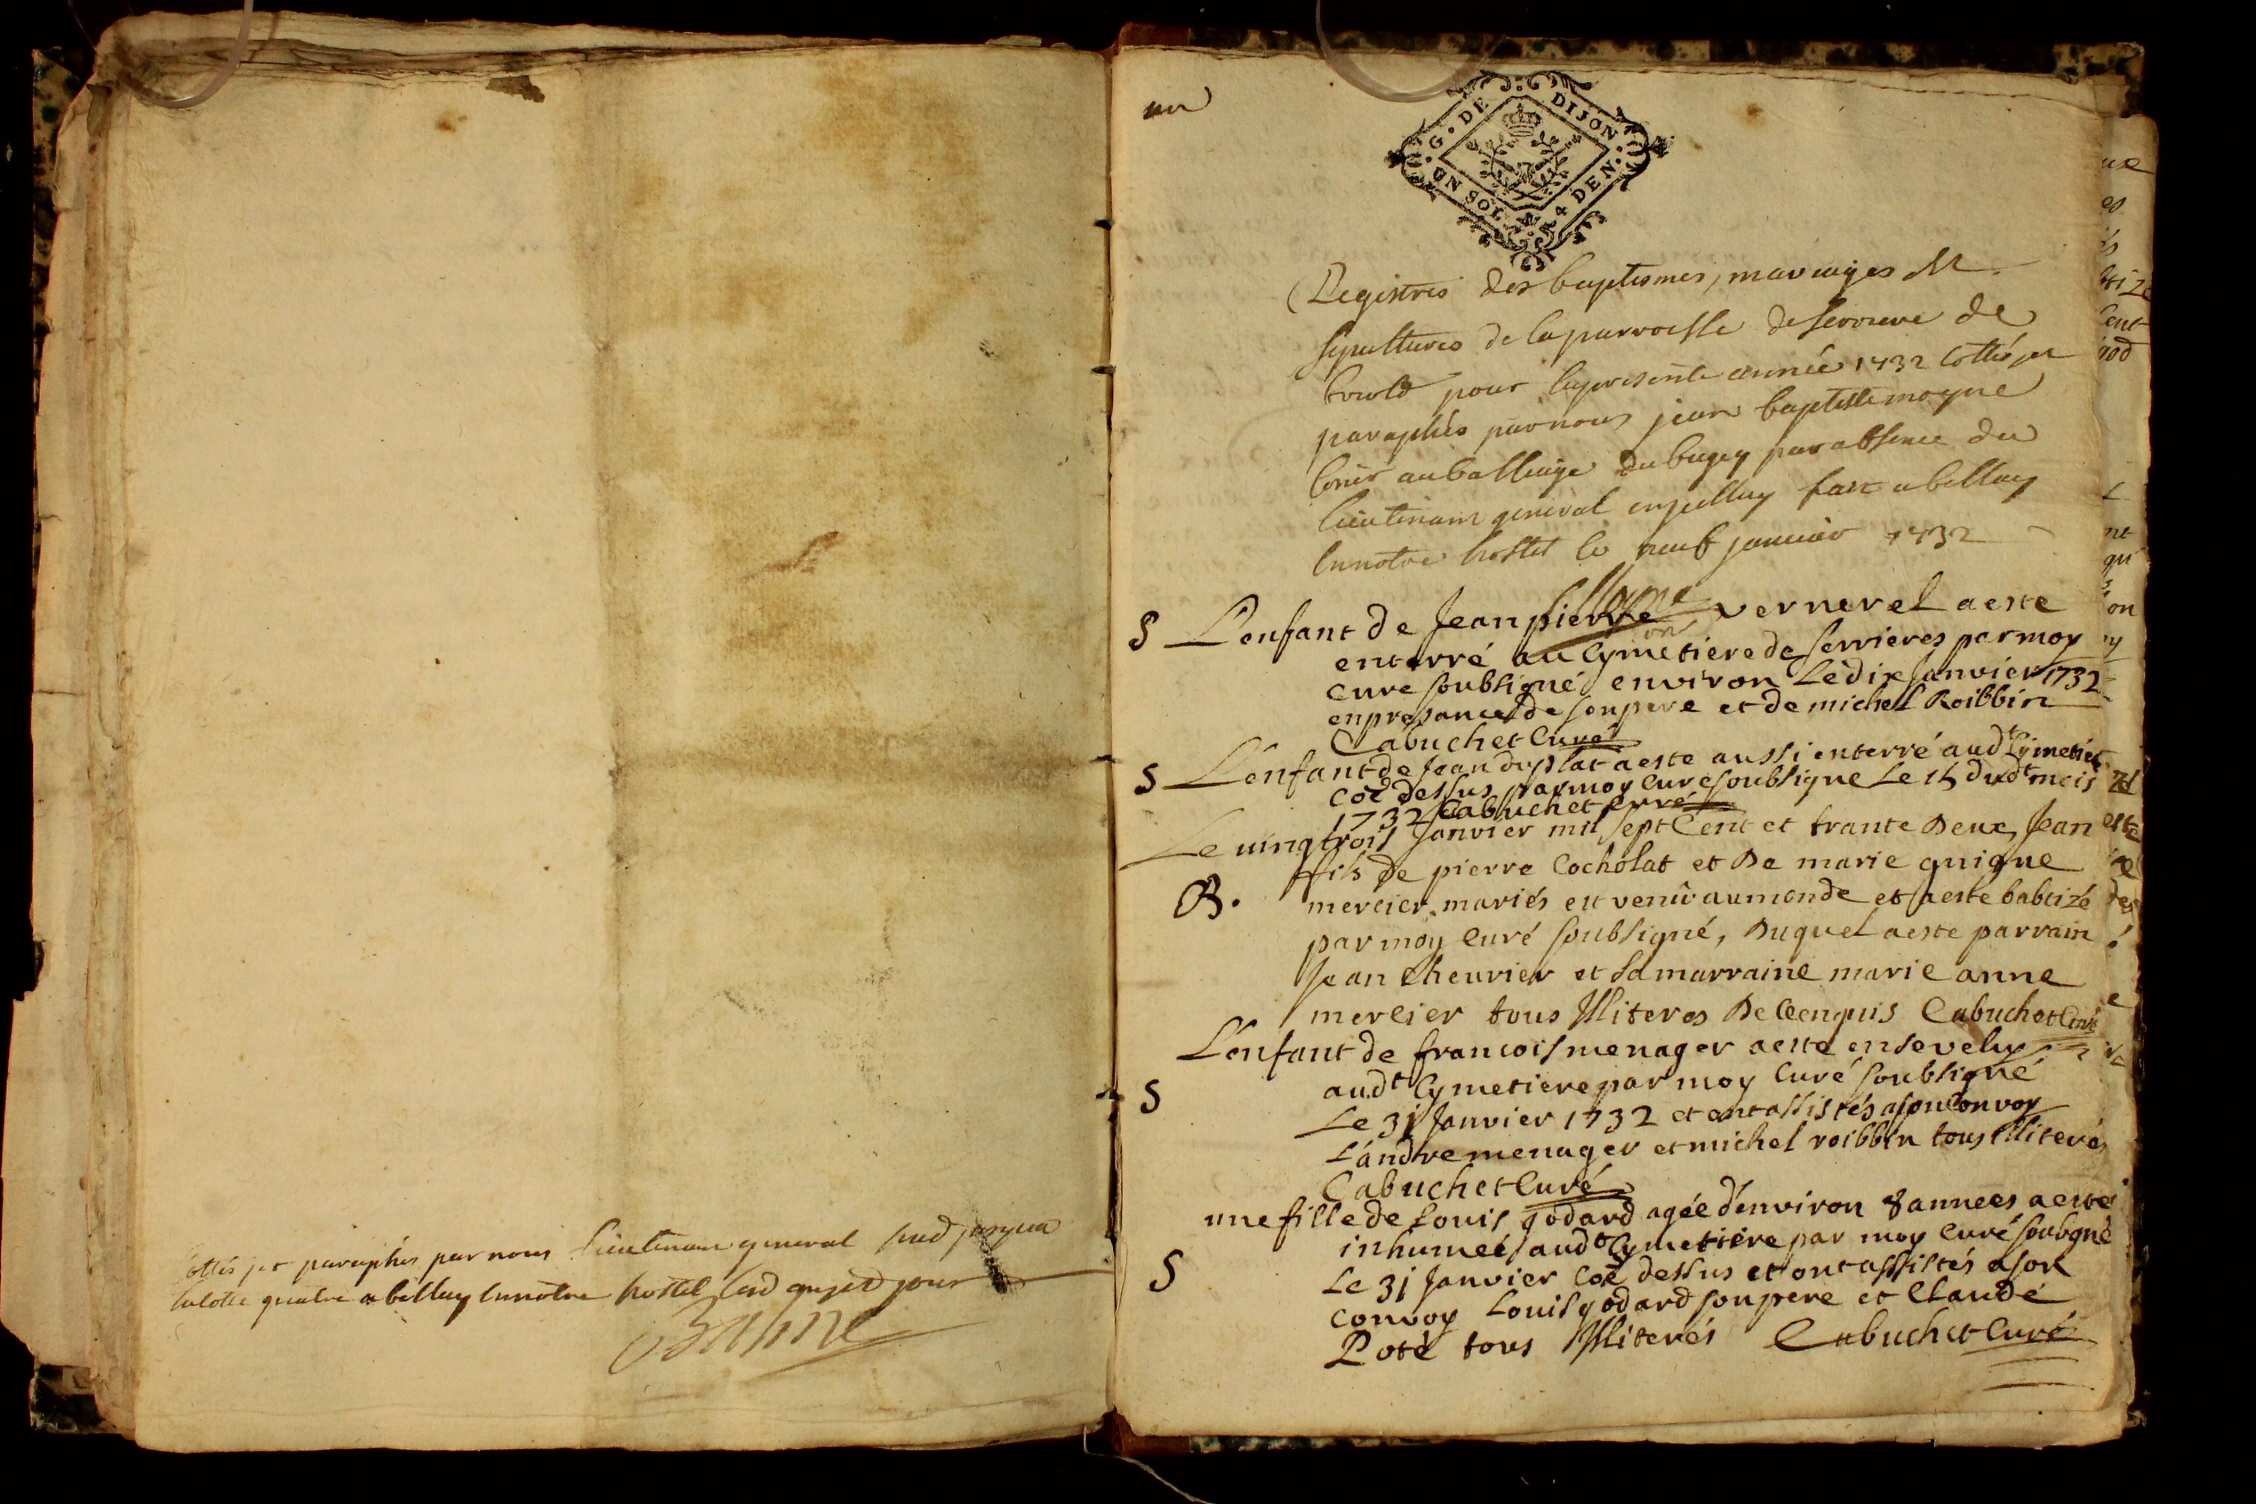 cottés et paraphés par nous Lieutenant general
calotte quatre a bellay en notre hostel jour
un
G. DE DIJON
UN SOL 4 DEN.
Registres des baptesmes, mariages et
sepultures de la parroisse de de
pour la presente année 1732 cottés et
paraphés par nous jean baptiste moyne
au balliage du bugey par absence du
lieutenant general fait a bellay
en notre hostel le neuf janvier 1732
S L'enfant de Jean pierre vernerel a esté
enterré au Cymetiere de serrieres par moy
cure soubsigné environ Le dix Janvier 1732
en presance de son pere et de michel Roibbin
Cabuchet Curé
S L'enfant de Jean duplat a este aussi enterré aud.t Cymetiere
coe dessus par moy curé soubsigne Le 15 dud.t mois
1732 Cabuchet Curé
Le vingtrois Janvier mil sept Cent et trante Deux Jean
fils de pierre Cocholat et De marie guigne
B. mercier mariés est venu au monde et a este babtizé
par moy Curé soubsigné, Duquel a este parrain
Jean Cheurier et La marraine marie anne
mercier tous Illiteres De ce enquis Cabuchet Curé
L'enfant de francois menager a esté ensevely
S aud.t Cymetiere par moy Curé soubsigné
Le 31 Janvier 1732 et ont assistés a son Convoy
L'andre menager et michel roibbin tous Illiterés
Cabuchet Curé
une fille de Louis godard agée d'environ 8 annees a esté
inhumeé aud.t Cymetiere par moy curé soubsgné
S Le 31 Janvier coe dessus et ont assistés a son
convoy Louis godard son pere et Claudé
Poté tous Illiterés Cabuchet Curé